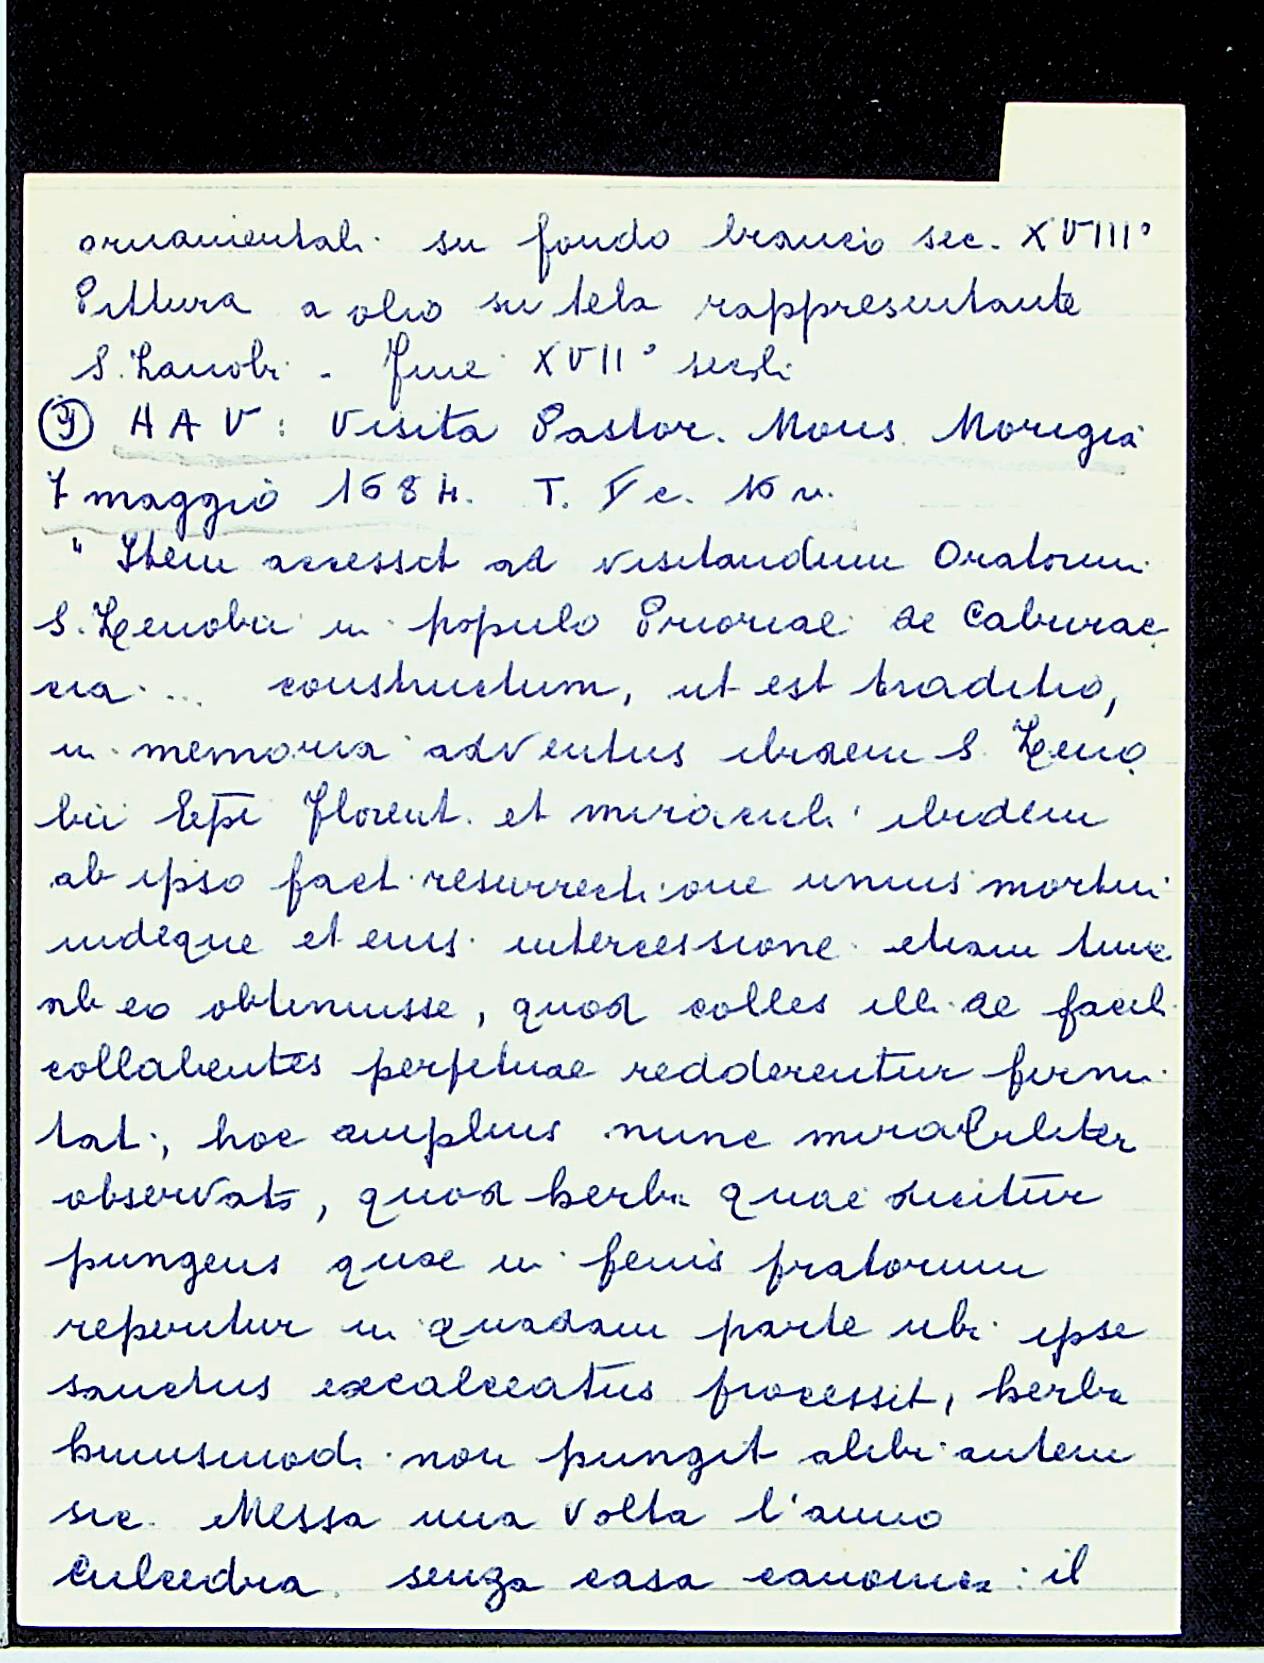 ornamentali su fondo bianco sec. XVIII°
Pittura a olio su tela rappresentante
S. Zanobi - fine XVII° secoli
⑨ A A V: Visita Pastor. Mons. Morigia
7 maggio 1684. T. V c. 16 v.
" Item accessit ad visitandum Oratorium
S. Zenobii in populo Prioriae de Caburac
cia ... constructum, ut est traditio,
in memoria adventus ibidem S. Zeno
bii Epi Florent. et miraculi ibidem
ab ipso fact resurrectione unius mortui
indeque et eius intercessione etiam tunc
ab eo obtinuisse, quod colles illi de facili
collabentes perpetuae redderentur firmi
tati, hoc amplius nunc mirabiliter
observato, quod herba quae dicitur
pungens quae in fenis pratorum
reperitur in quadam parte ubi ipse
sanctus excalceatus processit, herba
huiusmodi non pungit alibi autem
sic. Messa una volta l'anno
senza casa canonica: il